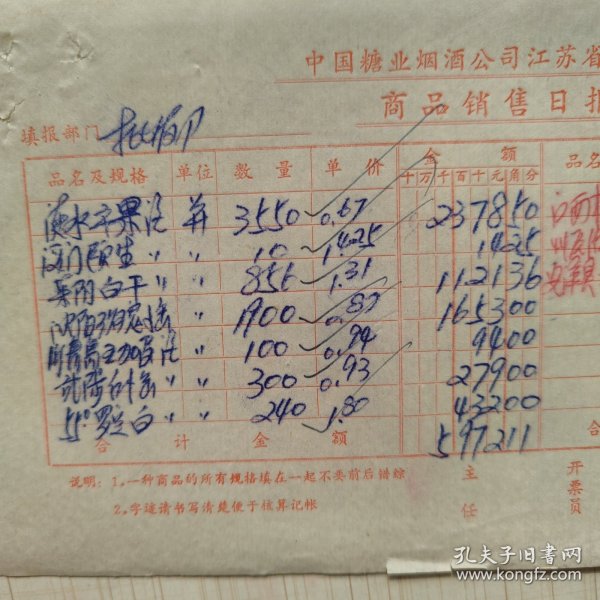 中国糖业烟酒公司江苏省
商品销售日报
填报部门 批发部
品名及规格 单位 数量 单价 金额 品名
十万千百十元角分
涟水苹果活 并 3550 0.67 237850
〃 〃 10 1.425 1425
白干 〃 856 1.31 112136
〃 1900 0.87 165300
五加皮活 〃 100 0.94 9400
沭阳 〃 〃 300 0.93 27900
55° 罗兰白 〃 240 1.80 43200
合计金额 597211 合
说明：1，一种商品的所有规格填在一起不要前后错综
2，字迹请书写清楚便于核算记帐
主任
开票员
孔夫子旧书网
www.kongfz.com